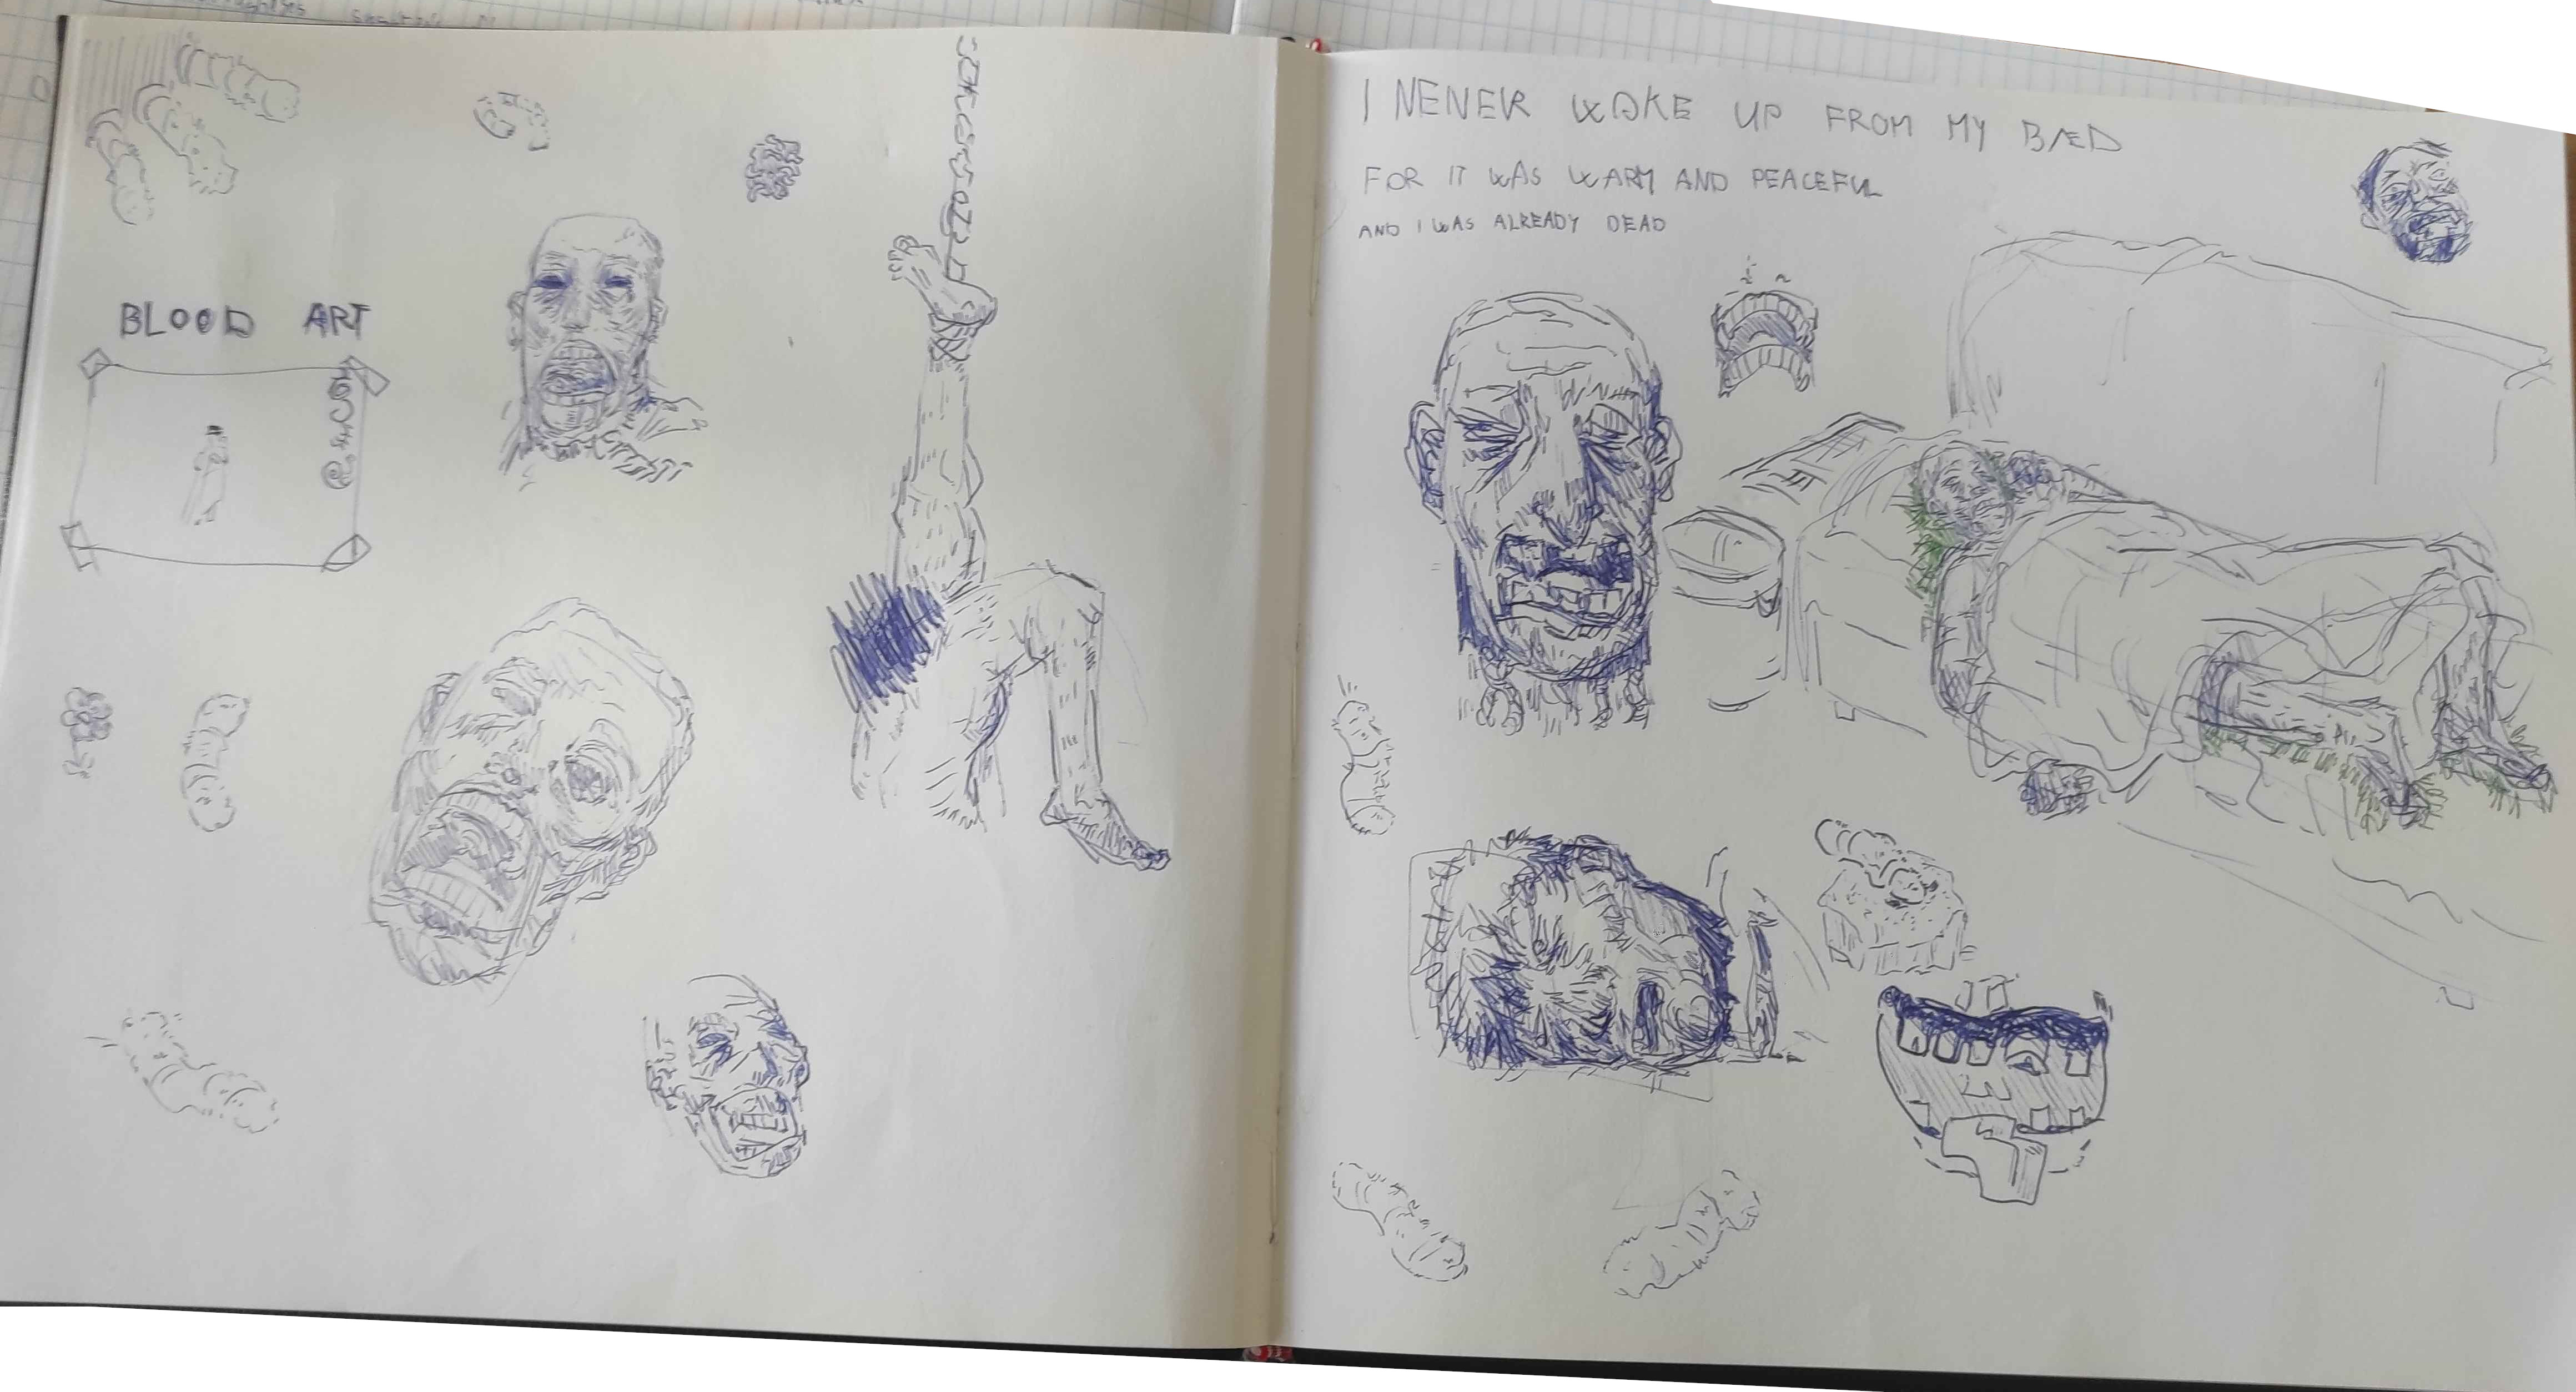 BLOOD ART
I NENER WOKE UP FROM MY BAED
FOR IT WAS WARM AND PEACEFUL
AND I WAS ALREADY DEAD